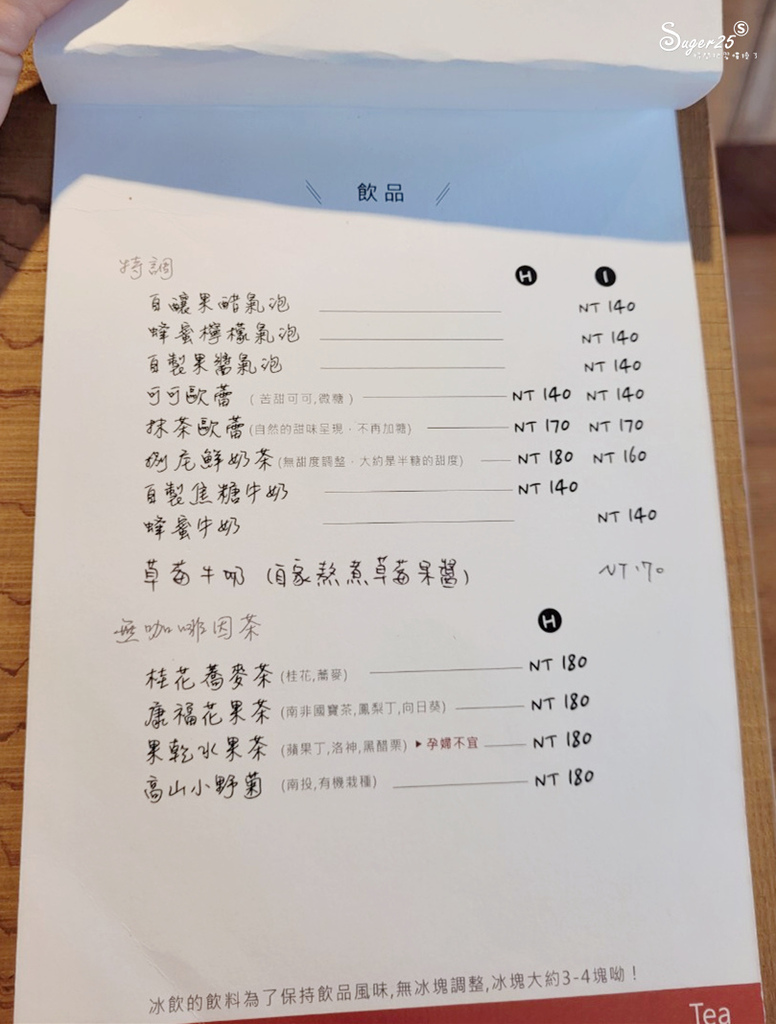 Suger25 S
飲品
特調 H I
自釀果醋氣泡 NT 140
蜂蜜檸檬氣泡 NT 140
自製果醬氣泡 NT 140
可可歐蕾 (苦甜可可,微糖) NT 140 NT 140
抹茶歐蕾 (自然的甜味呈現,不再加糖) NT 170 NT 170
鮮奶茶 (無甜度調整,大約是半糖的甜度) NT 180 NT 160
自製焦糖牛奶 NT 140
蜂蜜牛奶 NT 140
草莓牛奶 (自家熬煮草莓果醬) NT 170
無咖啡因茶 H
桂花蕎麥茶 (桂花,蕎麥) NT 180
康福花果茶 (南非國寶茶,鳳梨丁,向日葵) NT 180
果乾水果茶 (蘋果丁,洛神,黑醋栗) ▶孕婦不宜 NT 180
高山小野菊 (南投,有機栽種) NT 180
冰飲的飲料為了保持飲品風味,無冰塊調整,冰塊大約3-4塊呦!
Tea